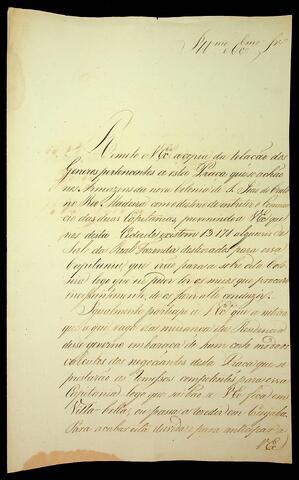 Illmo e Exmo Snr
Remeto a V Exa a copia da relação dos
Generos pertencentes a esta Praça que se achão
nos Armazens da nova Colonia de S. João do Crato
no Rio Madeira com destino de nutrir o Commer
cio das duas Capitanias, prevenindo a V Exa que
nesta Cidade existem 13171 alqueires de
Sal da Real Fazenda destinados para essa
Capitania, que irão para a sobredita Colo
nia logo que eu puder ter os meios que procuro
incessantemente, de os fazer alli conduzir.
Igualmente participo a V Exa que a noticia
que o vago das mudanças da Residencia
desse governo embaraça de hum certo modo os
calculos dos negociantes desta Praça que se
prestarão a competentes para essa
Capitania logo que saibão se V Exa fica em
Villa bella, ou passa a rezidir em Cuyaba.
Para acabar esta duvida e para anticipar a
V Exa